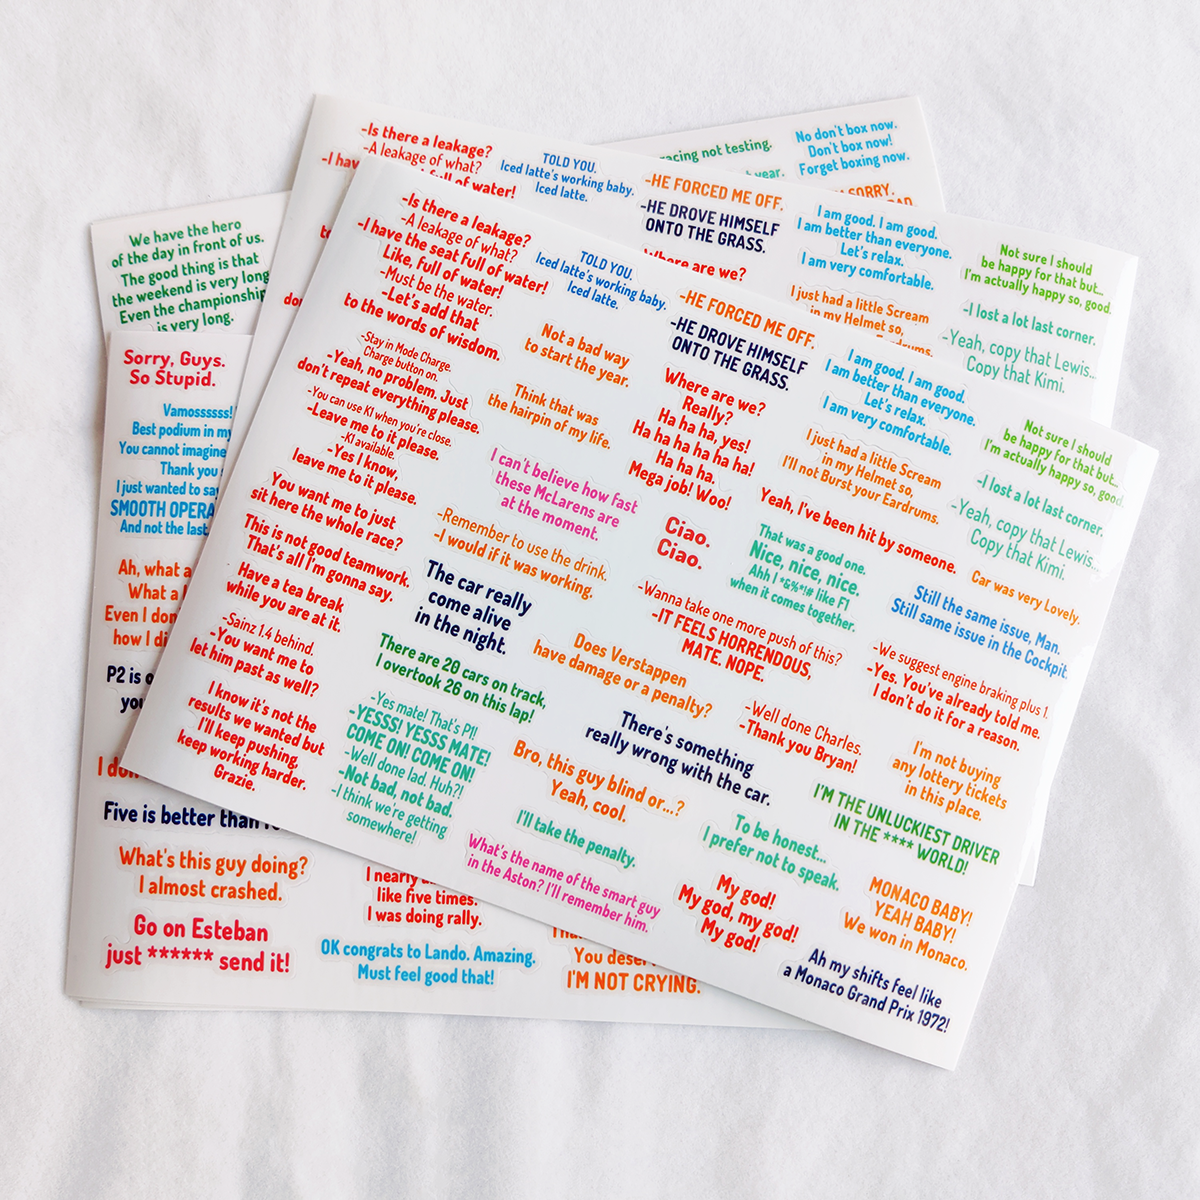 -Is there a leakage?
-A leakage of what?
-I have the seat full of water!
Like, full of water!
-Must be the water.
-Let's add that
to the words of wisdom.
-Stay in Mode Charge.
Charge button on.
-Yeah, no problem. Just
don't repeat everything please.
-You can use K1 when you're close.
-Leave me to it please.
-K1 available.
-Yes I know,
leave me to it please.
You want me to just
sit here the whole race?
This is not good teamwork.
That's all I'm gonna say.
Have a tea break
while you are at it.
-Sainz 1.4 behind.
-You want me to
let him past as well?
I know it's not the
results we wanted but
I'll keep pushing,
keep working harder.
Grazie.
TOLD YOU.
Iced latte's working baby.
Iced latte.
Not a bad way
to start the year.
Think that was
the hairpin of my life.
I can't believe how fast
these McLarens are
at the moment.
-Remember to use the drink.
-I would if it was working.
The car really
come alive
in the night.
There are 20 cars on track,
I overtook 26 on this lap!
-Yes mate! That's P1!
-YESSS! YESSS MATE!
COME ON! COME ON!
-Well done lad. Huh?!
-Not bad, not bad.
-I think we're getting
somewhere!
-HE FORCED ME OFF.
-HE DROVE HIMSELF
ONTO THE GRASS.
Where are we?
Really?
Ha ha ha, yes!
Ha ha ha ha ha ha!
Ha ha ha.
Mega job! Woo!
Ciao.
Ciao.
Yeah, I've been hit by someone.
That was a good one.
Nice, nice, nice.
Ahh I *&%*!# like F1
when it comes together.
-Wanna take one more push of this?
-IT FEELS HORRENDOUS,
MATE. NOPE.
Does Verstappen
have damage or a penalty?
There's something
really wrong with the car.
Bro, this guy blind or...?
Yeah, cool.
I'll take the penalty.
What's the name of the smart guy
in the Aston? I'll remember him.
I am good. I am good.
I am better than everyone.
Let's relax.
I am very comfortable.
I just had a little Scream
in my Helmet so,
I'll not Burst your Eardrums.
Not sure I should
be happy for that but...
I'm actually happy so, good.
-I lost a lot last corner.
-Yeah, copy that Lewis...
Copy that Kimi.
Car was very Lovely.
Still the same issue, Man.
Still same issue in the Cockpit.
-We suggest engine braking plus 1.
-Yes. You've already told me.
I don't do it for a reason.
-Well done Charles.
-Thank you Bryan!
I'm not buying
any lottery tickets
in this place.
I'M THE UNLUCKIEST DRIVER
IN THE **** WORLD!
To be honest...
I prefer not to speak.
My god!
My god, my god!
My god!
MONACO BABY!
YEAH BABY!
We won in Monaco.
Ah my shifts feel like
a Monaco Grand Prix 1972!
-Is there a leakage?
-A leakage of what?
-I hav
full of water!
TOLD YOU.
Iced latte's working baby.
Iced latte.
-HE FORCED ME OFF.
-HE DROVE HIMSELF
ONTO THE GRASS.
Where are we?
I am good. I am good.
I am better than everyone.
Let's relax.
I am very comfortable.
I just had a little Scream
in my Helmet so,
Not sure I should
be happy for that but...
I'm actually happy so, good.
-I lost a lot last corner.
-Yeah, copy that Lewis...
Copy that Kimi.
racing not testing.
year.
No don't box now.
Don't box now!
Forget boxing now.
SORRY.
We have the hero
of the day in front of us.
The good thing is that
the weekend is very long
Even the championship
is very long.
Sorry, Guys.
So Stupid.
Vamossssss!
Best podium in my
You cannot imagine
Thank you
I just wanted to say
SMOOTH OPERA
And not the last
Ah, what a
What a
Even I don
how I di
P2 is o
you
I don
Five is better than
What's this guy doing?
I almost crashed.
Go on Esteban
just ****** send it!
I nearly
like five times.
I was doing rally.
OK congrats to Lando. Amazing.
Must feel good that!
You dese
I'M NOT CRYING.